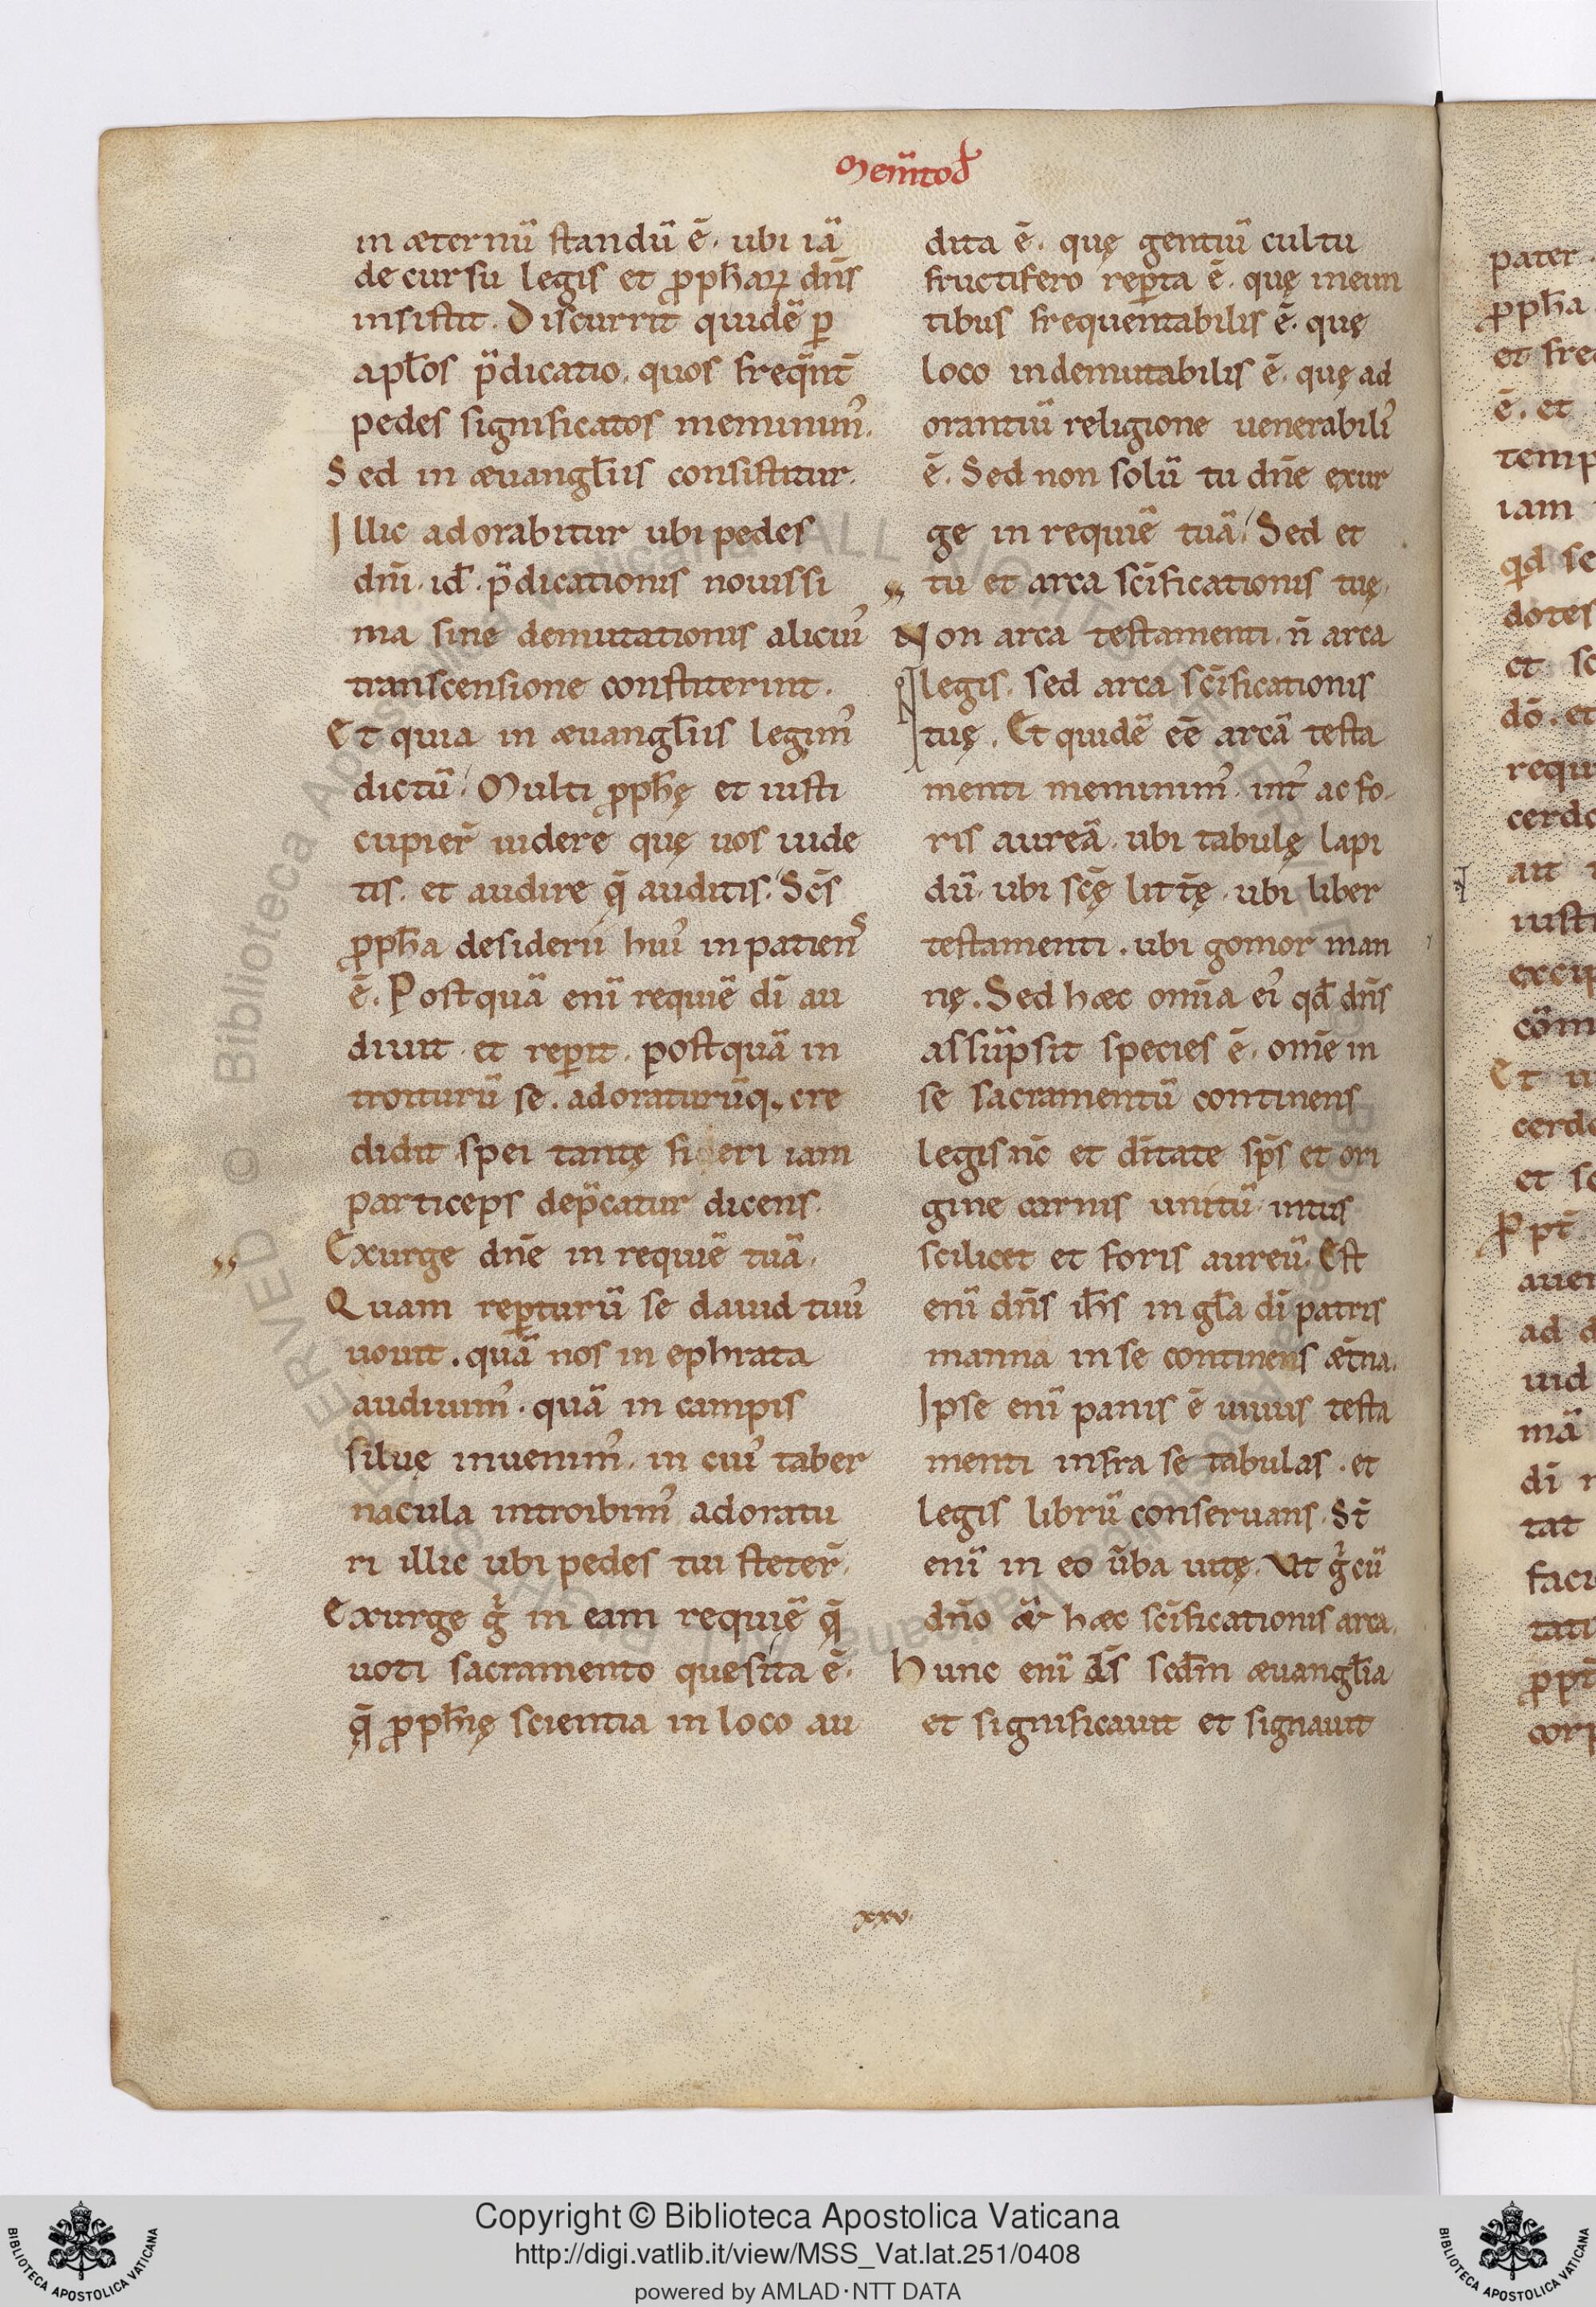 in æternū standū ē. ubi iā
de cursu legis et ꝓph̄aꝝ dn̄s
insistit. Discurrit quidē ꝑ
apl̄os p̄dicatio. quos freq̄nt̄
pedes significatos meminim᾽.
Sed in æuangl̄iis consistitur.
Illic adorabitur ubi pedes
dn̄i. id᷎. p̄dicationis nouissi
ma sine demutationis alicui᾽
transcensione constiterint.
Et quia in æuangl̄iis legim᾽
dictū. Multi ꝓph̄ę et iusti
cupier̄ uidere quę uos uide
tis. et audire q̨̄ auditis. Sc̄s
ꝓph̄a desiderii hui᾽ inpatiens
ē. Postquā enī requiē dī au
diuit et reꝑit. postquā in
troiturū se. adoraturūq; cre
didit spei tantę fideri iam
particeps dep̄catur dicens.
Exurge dn̄e in requiē tuā.
Quam reꝑturū se dauid tuu᾽
uouit. quā nos in ephrata
audiuim᾽. quā in campis
siluę inuenim᾽. in cui᾽ taber
nacula introibim᾽ adoratu
ri illic ubi pedes tui steter̄.
Exurge g̊ in eam requiē q̨̄
uoti sacramento quesita ē.
q̨̄ ꝓph̄ię scientia in loco au
Mem̄tod᷎
dita ē. quę gentiū cultu
fructifero reꝑta ē. quę ineun
tibus frequentabilis ē. quę
loco indemutabilis ē. quę ad
orantiū religione uenerabili᾽
ē. Sed non solū tu dn̄e exur
ge in requiē tuā. Sed et
tu et arca sc̄ificationis tuę.
Non arca testamenti. n̄ arca
legis. sed arca sc̄ificationis
tuę. Et quidē eē arcā testa
menti meminim᾽. int᾽ ac fo
ris aureā. ubi tabulę lapi
dū. ubi sc̄ę litt̄ę. ubi liber
testamenti. ubi gomor man
nę. Sed hæc omīa ei᾽ qd̄ dn̄s
assūpsit species ē. om̄e in
se sacramentū continens
legis nc̄ et dītate sp̄s et ori
gine carnis unitū. intus
scilicet et foris aureū. Est
enī dn̄s ih̄s in gl̄a dī patris
manna in se continens æt̄na.
Ipse enī panis ē uiuus testa
menti infra se tabulas. et
legis librū conseruans. St̄
enī in eo ūba uitę. Ut g̊ cū
dn̄o hæc sc̄ificationis arca.
Hunc enī d̄s sc̄dm æuangl̄ia
et significauit et signauit
xxv.
pater.
ꝓph̄a
et fre
ē. et
temp
iam
qd se
dotes
et sc
dō. et
requi
cerdo
ait
iusti
excip
cōm
Et u
cerdo
et se
Ꝓpt̄
auer
ad d
uid
mā
dī
tat
faci
tati
ꝓpt̄
corp
Copyright © Biblioteca Apostolica Vaticana
http://digi.vatlib.it/view/MSS_Vat.lat.251/0408
powered by AMLAD·NTT DATA
BIBLIOTECA APOSTOLICA VATICANA
BIBLIOTECA APOSTOLICA VATICANA